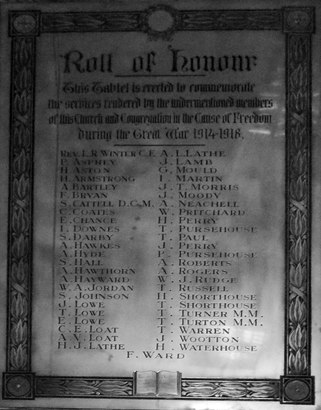 Roll of Honour
This Tablet is erected to commemorate
the services rendered by the undermentioned members
of this Church and Congregation in the Cause of Freedom
during the Great War 1914-1918.
REV. L. R. WINTER C.F. A. L. LATHE
P. ASPREY J. LAMB
H. ASTON G. MOULD
H. ARMSTRONG L. MARTIN
A. BARTLEY J. T. MORRIS
F. BRYAN J. MOODY
S. CATTELL D.C.M. A. NEACHELL
C. COATES W. PRITCHARD
E. CHANCE H. PERRY
I. DOWNES T. PURSEHOUSE
S. DARBY T. PAUL
A. HAWKES J. PERRY
A. HYDE P. PURSEHOUSE
S. HALL A. ROBERTS
A. HAWTHORN A. ROGERS
A. HAYWARD W. J. RUDGE
W. A. JORDAN T. RUSSELL
S. JOHNSON H. SHORTHOUSE
J. LOWE T. SHORTHOUSE
T. LOWE T. TURNER M.M.
E. LOWE T. TURTON M.M.
C. E. LOAT T. WARREN
A. V. LOAT J. WOOTTON
H. J. LATHE H. WATERHOUSE
F. WARD